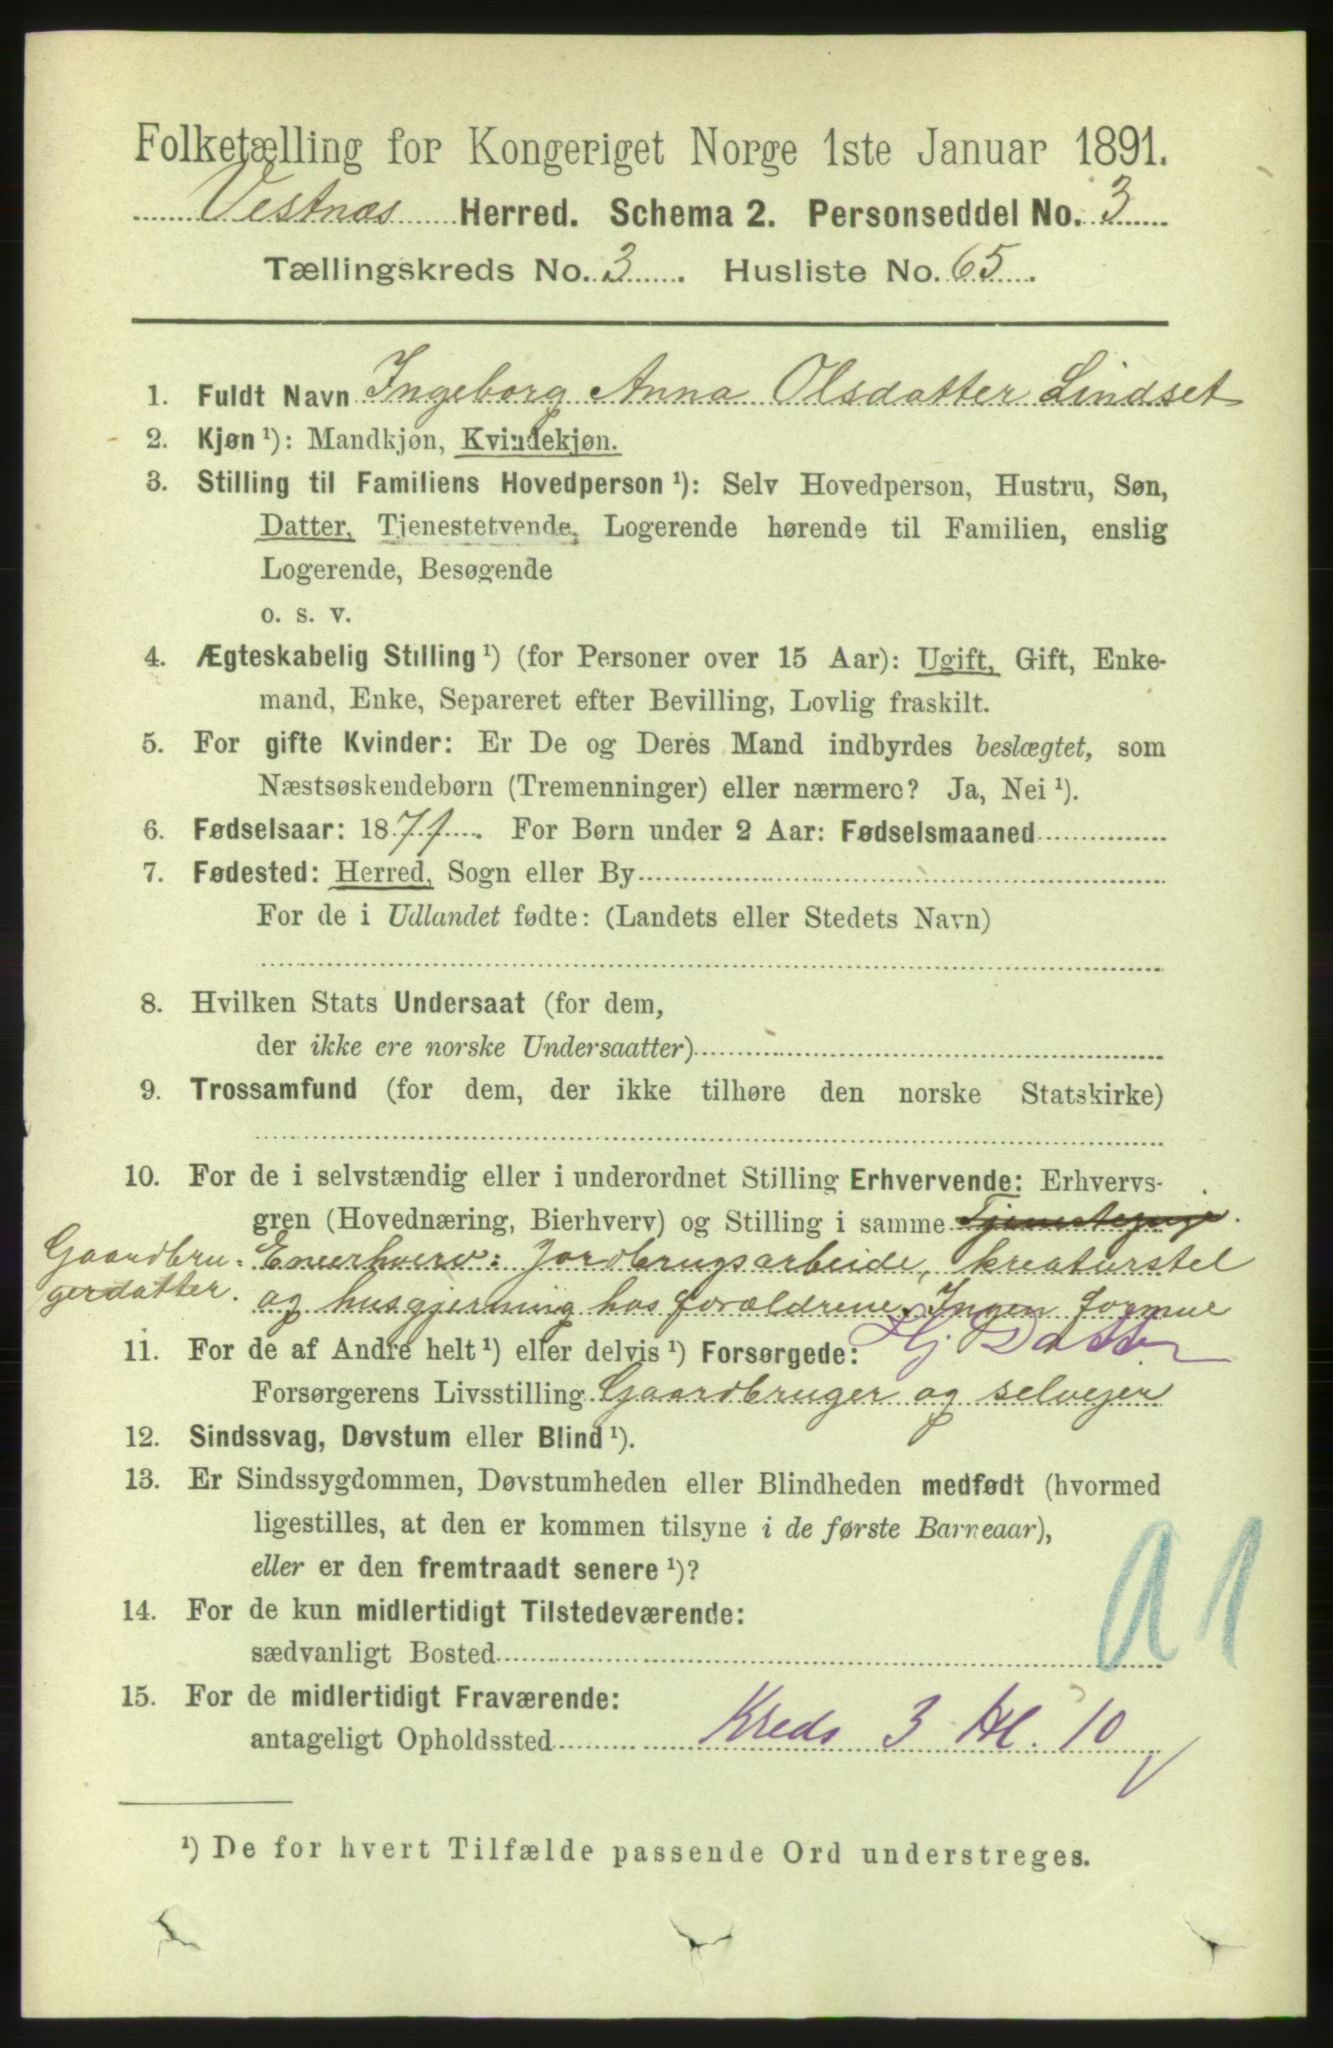 Folketælling for Kongeriget Norge 1ste Januar 1891.
Vestnæs Herred. Schema 2. Personseddel No. 3
Tællingskreds No. 3. Husliste No. 65.
1. Fuldt Navn Ingeborg Anna Olsdatter Lindset
2. Kjøn ¹): Mandkjøn, Kvindekjøn.
3. Stilling til Familiens Hovedperson ¹): Selv Hovedperson, Hustru, Søn,
Datter, Tjenestetyende, Logerende hørende til Familien, enslig
Logerende, Besøgende
o. s. v.
4. Ægteskabelig Stilling ¹) (for Personer over 15 Aar): Ugift, Gift, Enke-
mand, Enke, Separeret efter Bevilling, Lovlig fraskilt.
5. For gifte Kvinder: Er De og Deres Mand indbyrdes beslægtet, som
Næstsøskendebørn (Tremenninger) eller nærmere? Ja, Nei ¹).
6. Fødselsaar: 1871. For Børn under 2 Aar: Fødselsmaaned
7. Fødested: Herred, Sogn eller By
For de i Udlandet fødte: (Landets eller Stedets Navn)
8. Hvilken Stats Undersaat (for dem,
der ikke ere norske Undersaatter)
9. Trossamfund (for dem, der ikke tilhøre den norske Statskirke)
10. For de i selvstændig eller i underordnet Stilling Erhvervende: Erhvervs-
gren (Hovednæring, Bierhverv) og Stilling i samme Tjenestepige.
Gaardbru- Eneerhverv: Jordbrugsarbeide, kreaturstel
gerdatter. og husgjerning hos forældrene. Ingen formue
Hj Datter
11. For de af Andre helt ¹) eller delvis ¹) Forsørgede:
Forsørgerens Livsstilling Gaardbruger og selvejer
12. Sindssvag, Døvstum eller Blind ¹).
13. Er Sindssygdommen, Døvstumheden eller Blindheden medfødt (hvormed
ligestilles, at den er kommen tilsyne i de første Barneaar),
eller er den fremtraadt senere ¹)?
14. For de kun midlertidigt Tilstedeværende:
sædvanligt Bosted
15. For de midlertidigt Fraværende:
antageligt Opholdssted Kreds 3 Hl. 10
¹) De for hvert Tilfælde passende Ord understreges.